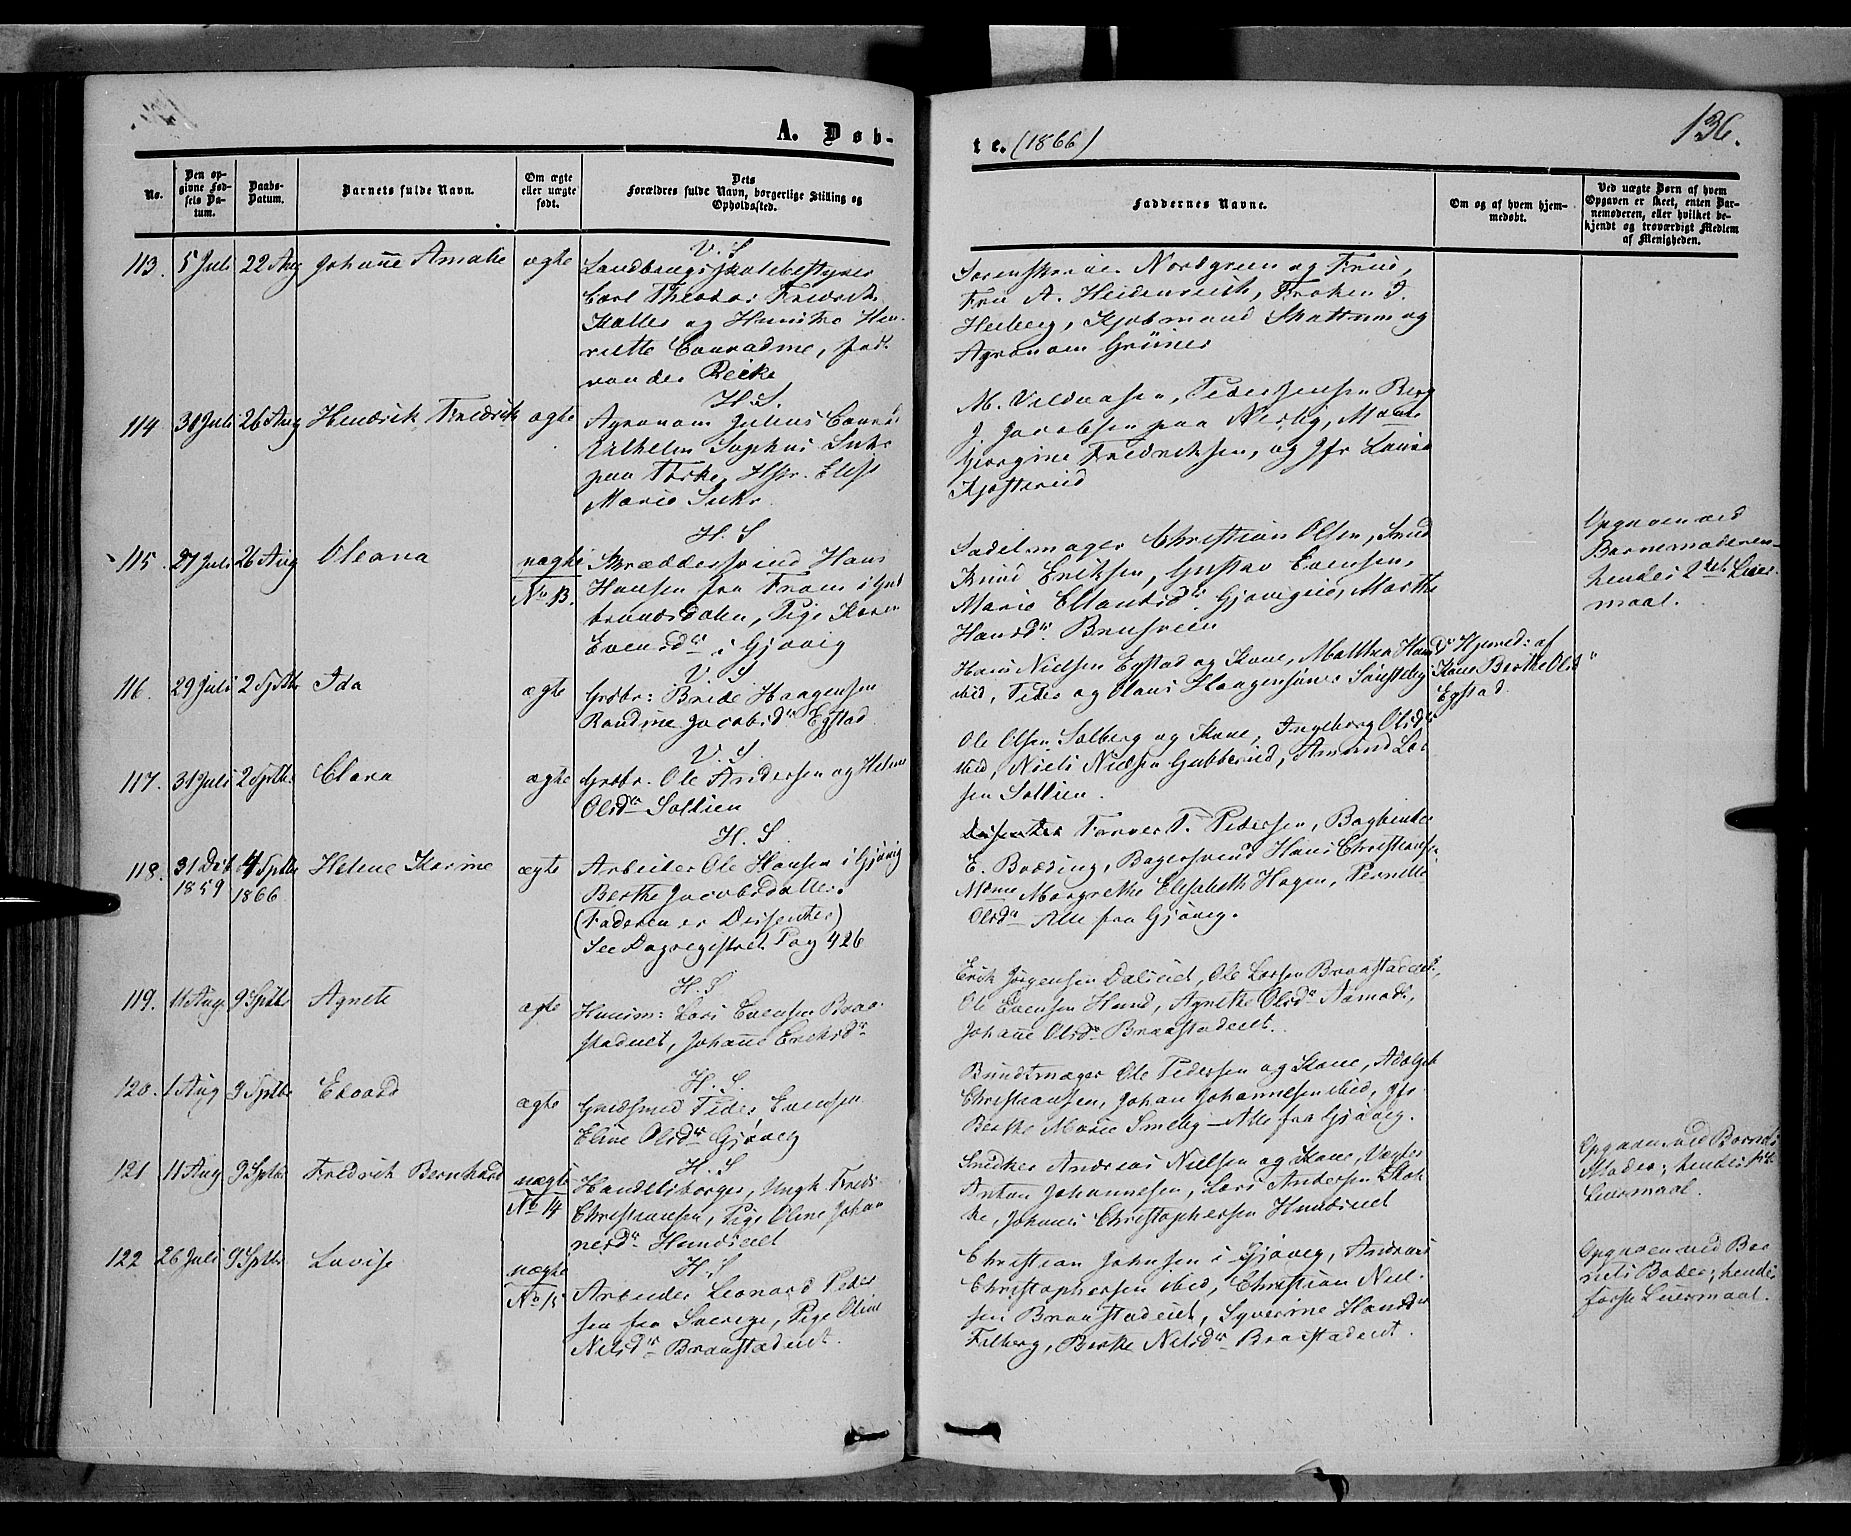 136.
A. Døb-
te. (1866)
No.
Den opgivne Fødsels Datum.
Daabs-Datum.
Barnets fulde Navn.
Om ægte eller uægte født.
Dets Forældres fulde Navn, borgerlige Stilling og Opholdssted.
Faddernes Navne.
Om og af hvem hjemmedøbt.
Ved uægte Børn af hvem Opgaven er skeet, enten Barnemoderen, eller hvilket bekjendt og troværdigt Medlem af Menigheden.
113. 5 Juli 22 Aug Johanne Amalie ægte
V. S
Landbrugsskolebestyrer
Carl Theodor Fredrik
og Hustru Hen-
riette Conradine, fød.
von der Recke
Sorenskriver Nordgreen og Frue,
Fru A. Heidenreich, Frøken J.
Heiberg, Kjøbmand Skattum og
Agronom Grüner
114 30 Juli 26 Aug Hendrik Fredrik ægte
H. S.
Agronom Julius Conrad
Vilhelm Sophus
paa Hstr. Elise
Marie
M. Pedersen Berg
J. Jacobsen paa Nerby, Mdme
Georgine Fredriksen, og Jfr Louise
Kjøstrud
115. 27 Juli 26 Aug Oleana uægte
No 13.
H. S
Skræddersvend Hans
Hansen fra Fron i Gud-
brandsdalen, Pige Karen
Evensdr i Gjøvig
Sadelmager Christian Olsen, Snd
Knud Eriksen, Gustav Evensen,
Marie Gjøvigeie, Marthe
Hansdr. Brusveen
Opgaven ved
Barnemoderen-
hendes 2det Leier-
maal.
116. 29 Juli 2 Sptbr Ida ægte
V. S
Grdbr: Brede Haagensen
Randine Jacobsdr Egstad
Hans Nielsen Egstad og Kone, Mathea Hansdr
ibid, Peder og Olaus Haagensønner Sangstebÿ
Hjemmed: af
Kone Berthe Olsdr
Egstad.
117. 31 Juli 2 Sptbr. Clara ægte
V. S
Grdbr. Ole Andersen og Helene
Olsdr Sollien
Ole Olsen Solberg og Kone, Ingeborg Olsdr
ibid, Niels Nielsen Gubberud, Amund Lar-
sen Sollien.
118. 31 Dcbr 1859 4 Sptbr 1866 Helene Karine ægte
H. S.
Arbeider Ole Hansen i Gjøvig
Berthe Jacobsdatter.
(Faderen er Dissenter)
See Dagregistret Pag 426
Dissenter Farver F. Pedersen, Bogbinder
E. Boeding, Bagersvend Hans Christiansen
Mdme Margrethe Elisabeth Hagen, Pernille
Olsdr Alle fra Gjøvig.
119. 11 Aug. 9 Sptbr Agnete ægte
H. S
Huusm: Lars Evensen Braa-
stadeiet, Johanne Eriksdr
Erik Jørgensen Dalseiet, Ole Larsen Braastadeiet,
Ole Evensen Hund, Agnethe Olsdr
Johanne Olsdr Braastadeiet.
120. 1 Aug 9 Sptbr Edvard ægte
H. S.
Guldsmed Peder Evensen
Eline Olsdr Gjøvig
Bundtmager Ole Pedersen og Kone, Adolph
Christiansen, Johan Johannesen ibid, Jfr
Berthe Marie Smeby - Alle fra Gjøvig.
121 11 Aug 9 Sptbr Fredrik Bernhard uægte
No 14
H. S
Handelsborger, Ungk. Fredr.
Christiansen, Pige Oline Johan
nesdr Hundseiet
Snedker Andreas Nielsen og Kone, Vægter
Anton Johannesen, Lars Andersen
Johannes Christophersen Hundseiet
Opgaven ved Barnets
Moder; hendes 1ste
Leiermaal.
122 26 Juli 9 Sptbr Lovise uægte
No 15
H. S
Arbeider Leonard Peder
sen fra Sverige, Pige Oline
Nilsdr Braastadeiet.
Christian Johnsen i Gjøvig, Andreas
Christophersen ibid, Christian Niel-
sen Braastadeiet, Syverine Hansdr
Filberg, Berthe Nilsdr Braastadeiet.
Opgaven ved Bar-
nets Moder; hendes
første Leiermaal.